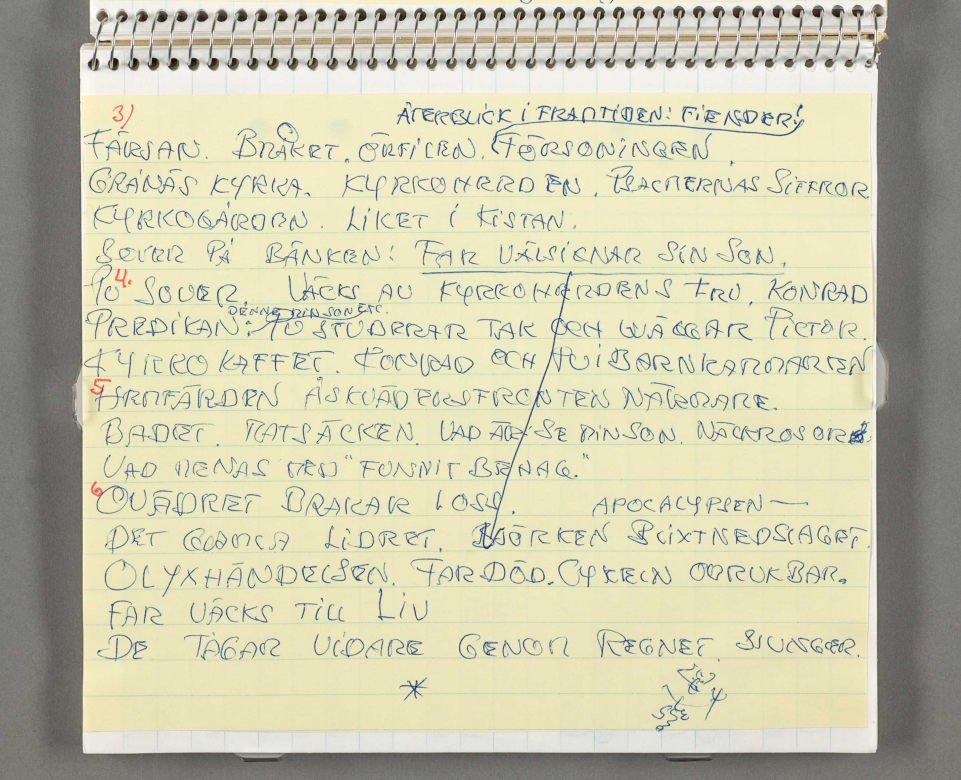 3)
ÅTERBLICK I FRAMTIDEN: FIENDER!
FÄRJAN. BRÅKET. ÖRFILEN. FÖRSONINGEN.
GRÅNÄS KYRKA. KYRKOHERDEN. PSALMERNAS SIFFROR
KYRKOGÅRDEN. LIKET I KISTAN.
SOVER PÅ BÄNKEN: FAR VÄLSIGNAR SIN SON.
4. PU SOVER. VÄCKS AV KYRKOHERDENS FRU, KONRAD
DENNE MIN SON ETC.
PREDIKAN: PU STUDERAR TAK OCH VÄGGAR PICTOR.
KYRKOKAFFET. KONRAD OCH I BARNKAMMAREN
5 HEMFÄRDEN ÅSKVÄDERSFRONTEN NÄRMARE.
BADET. MATSÄCKEN. VAD ÄR: SE MIN SON. NÄCKROSOR
VAD MENAS MED "FUNNIT BEHAG."
6 OVÄDRET BRAKAR LOSS. APOCALYPSEN —
DET GAMLA LIDRET. MÖRKEN BLIXTNEDSLAGET.
OLYXHÄNDELSEN. FAR DÖD. CYKELN OBRUKBAR.
FAR VÄCKS TILL LIV
DE TÅGAR VIDARE GENOM REGNET. SJUNGER.